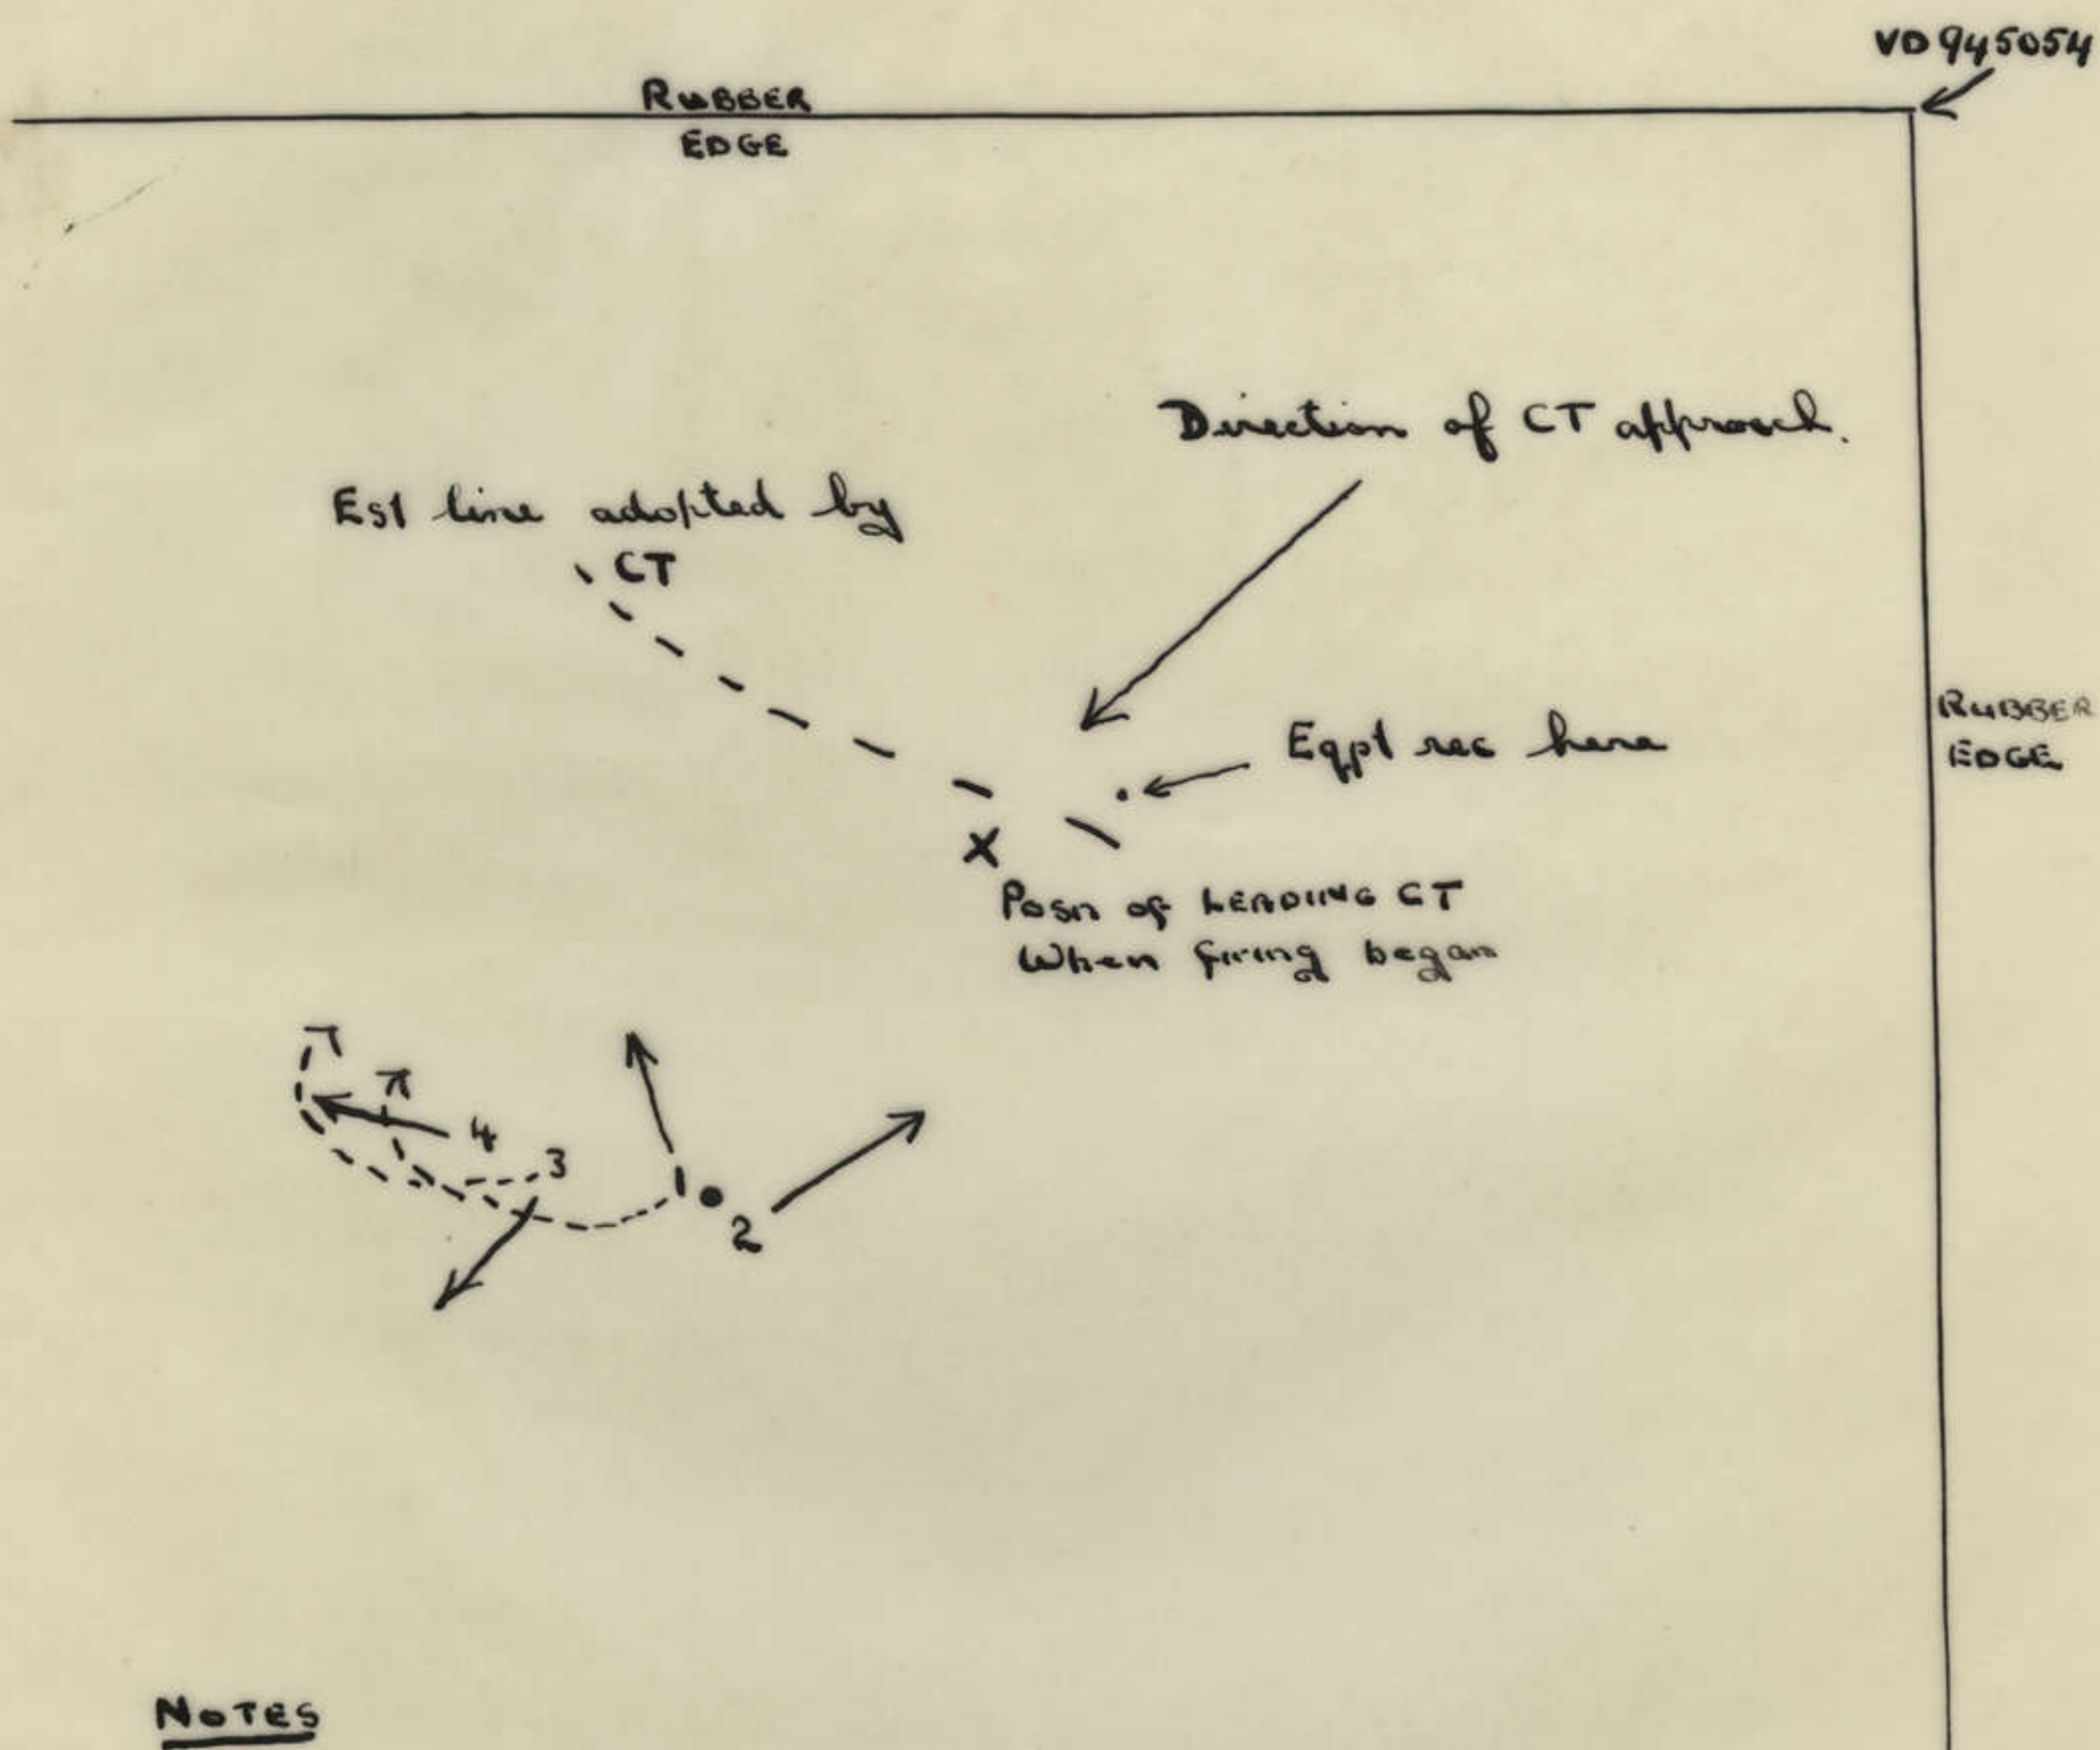 VD 945054
RUBBER
EDGE
Direction of CT approach.
Est line adopted by
CT
Eqpt rec here
RUBBER
EDGE
X
Posn of LEADING CT
When firing began
4
3
1
2
NOTES